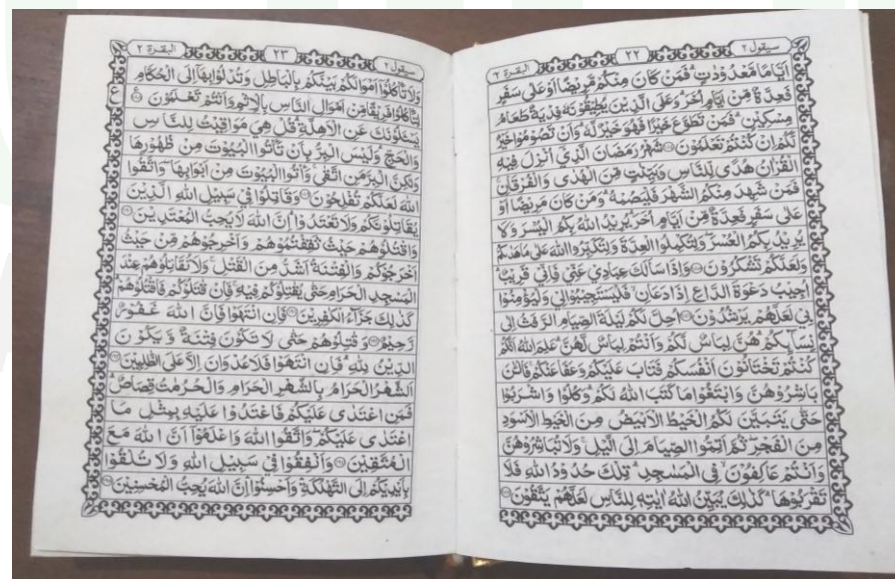 سيقول ٢ ٢٢ البقرة ٢
اَيَّامًا مَّعْدُوْدٰتٍ فَمَنْ كَانَ مِنْكُمْ مَّرِيْضًا اَوْ عَلٰى سَفَرٍ
فَعِدَّةٌ مِّنْ اَيَّامٍ اُخَرَ وَعَلَى الَّذِيْنَ يُطِيْقُوْنَهٗ فِدْيَةٌ طَعَامُ
مِسْكِيْنٍ فَمَنْ تَطَوَّعَ خَيْرًا فَهُوَ خَيْرٌ لَّهٗ وَاَنْ تَصُوْمُوْا خَيْرٌ
لَّكُمْ اِنْ كُنْتُمْ تَعْلَمُوْنَ شَهْرُ رَمَضَانَ الَّذِيْٓ اُنْزِلَ فِيْهِ
الْقُرْاٰنُ هُدًى لِّلنَّاسِ وَبَيِّنٰتٍ مِّنَ الْهُدٰى وَالْفُرْقَانِ
فَمَنْ شَهِدَ مِنْكُمُ الشَّهْرَ فَلْيَصُمْهُ وَمَنْ كَانَ مَرِيْضًا اَوْ
عَلٰى سَفَرٍ فَعِدَّةٌ مِّنْ اَيَّامٍ اُخَرَ يُرِيْدُ اللّٰهُ بِكُمُ الْيُسْرَ وَلَا
يُرِيْدُ بِكُمُ الْعُسْرَ وَلِتُكْمِلُوا الْعِدَّةَ وَلِتُكَبِّرُوا اللّٰهَ عَلٰى مَا هَدٰىكُمْ
وَلَعَلَّكُمْ تَشْكُرُوْنَ وَاِذَا سَاَلَكَ عِبَادِيْ عَنِّيْ فَاِنِّيْ قَرِيْبٌ
اُجِيْبُ دَعْوَةَ الدَّاعِ اِذَا دَعَانِ فَلْيَسْتَجِيْبُوْا لِيْ وَلْيُؤْمِنُوْا
بِيْ لَعَلَّهُمْ يَرْشُدُوْنَ اُحِلَّ لَكُمْ لَيْلَةَ الصِّيَامِ الرَّفَثُ اِلٰى
نِسَآىِٕكُمْ هُنَّ لِبَاسٌ لَّكُمْ وَاَنْتُمْ لِبَاسٌ لَّهُنَّ عَلِمَ اللّٰهُ اَنَّكُمْ
كُنْتُمْ تَخْتَانُوْنَ اَنْفُسَكُمْ فَتَابَ عَلَيْكُمْ وَعَفَا عَنْكُمْ فَالْـٰٔنَ
بَاشِرُوْهُنَّ وَابْتَغُوْا مَا كَتَبَ اللّٰهُ لَكُمْ وَكُلُوْا وَاشْرَبُوْا
حَتّٰى يَتَبَيَّنَ لَكُمُ الْخَيْطُ الْاَبْيَضُ مِنَ الْخَيْطِ الْاَسْوَدِ
مِنَ الْفَجْرِ ثُمَّ اَتِمُّوا الصِّيَامَ اِلَى الَّيْلِ وَلَا تُبَاشِرُوْهُنَّ
وَاَنْتُمْ عَاكِفُوْنَ فِى الْمَسٰجِدِ تِلْكَ حُدُوْدُ اللّٰهِ فَلَا
تَقْرَبُوْهَا كَذٰلِكَ يُبَيِّنُ اللّٰهُ اٰيٰتِهٖ لِلنَّاسِ لَعَلَّهُمْ يَتَّقُوْنَ
سيقول ٢ ٢٣ البقرة ٢
وَلَا تَأْكُلُوْٓا اَمْوَالَكُمْ بَيْنَكُمْ بِالْبَاطِلِ وَتُدْلُوْا بِهَآ اِلَى الْحُكَّامِ
لِتَأْكُلُوْا فَرِيْقًا مِّنْ اَمْوَالِ النَّاسِ بِالْاِثْمِ وَاَنْتُمْ تَعْلَمُوْنَ
يَسْـَٔلُوْنَكَ عَنِ الْاَهِلَّةِ قُلْ هِيَ مَوَاقِيْتُ لِلنَّاسِ
وَالْحَجِّ وَلَيْسَ الْبِرُّ بِاَنْ تَأْتُوا الْبُيُوْتَ مِنْ ظُهُوْرِهَا
وَلٰكِنَّ الْبِرَّ مَنِ اتَّقٰى وَأْتُوا الْبُيُوْتَ مِنْ اَبْوَابِهَا وَاتَّقُوا
اللّٰهَ لَعَلَّكُمْ تُفْلِحُوْنَ وَقَاتِلُوْا فِيْ سَبِيْلِ اللّٰهِ الَّذِيْنَ
يُقَاتِلُوْنَكُمْ وَلَا تَعْتَدُوْا اِنَّ اللّٰهَ لَا يُحِبُّ الْمُعْتَدِيْنَ
وَاقْتُلُوْهُمْ حَيْثُ ثَقِفْتُمُوْهُمْ وَاَخْرِجُوْهُمْ مِّنْ حَيْثُ
اَخْرَجُوْكُمْ وَالْفِتْنَةُ اَشَدُّ مِنَ الْقَتْلِ وَلَا تُقَاتِلُوْهُمْ عِنْدَ
الْمَسْجِدِ الْحَرَامِ حَتّٰى يُقٰتِلُوْكُمْ فِيْهِ فَاِنْ قٰتَلُوْكُمْ فَاقْتُلُوْهُمْ
كَذٰلِكَ جَزَآءُ الْكٰفِرِيْنَ فَاِنِ انْتَهَوْا فَاِنَّ اللّٰهَ غَفُوْرٌ
رَّحِيْمٌ وَقٰتِلُوْهُمْ حَتّٰى لَا تَكُوْنَ فِتْنَةٌ وَّيَكُوْنَ
الدِّيْنُ لِلّٰهِ فَاِنِ انْتَهَوْا فَلَا عُدْوَانَ اِلَّا عَلَى الظّٰلِمِيْنَ
اَلشَّهْرُ الْحَرَامُ بِالشَّهْرِ الْحَرَامِ وَالْحُرُمٰتُ قِصَاصٌ
فَمَنِ اعْتَدٰى عَلَيْكُمْ فَاعْتَدُوْا عَلَيْهِ بِمِثْلِ مَا
اعْتَدٰى عَلَيْكُمْ وَاتَّقُوا اللّٰهَ وَاعْلَمُوْٓا اَنَّ اللّٰهَ مَعَ
الْمُتَّقِيْنَ وَاَنْفِقُوْا فِيْ سَبِيْلِ اللّٰهِ وَلَا تُلْقُوْا
بِاَيْدِيْكُمْ اِلَى التَّهْلُكَةِ وَاَحْسِنُوْا اِنَّ اللّٰهَ يُحِبُّ الْمُحْسِنِيْنَ